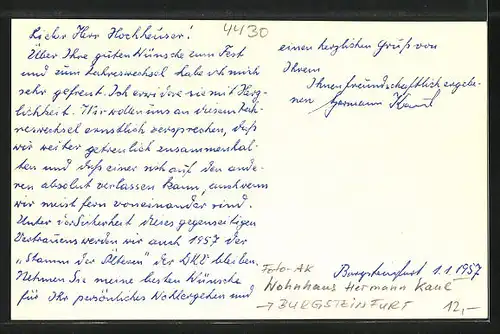 4430
Lieber Herr Hochhäuser!
Über Ihre guten Wünsche zum Fest
und zum Jahreswechsel habe ich mich
sehr gefreut. Ich erwidere sie mit Herz-
lichkeit. Wir wollen uns an diesem Jah-
reswechsel ernstlich versprechen, daß
wir weiter getreulich zusammenhal-
ten und daß einer sich auf den ande-
ren absolut verlassen kann, auch wenn
wir meist fern voneinander sind.
Unter der Sicherheit dieses gegenseitigen
Vertrauens werden wir auch 1957 der
„Stamm der Älteren" der bleiben.
Nehmen Sie meine besten Wünsche
für Ihr persönliches Wohlergehen und
einen herzlichen Gruß von
Ihrem
Ihnen freundschaftlich ergebe-
nen Hermann
Burgsteinfurt 1.1.1957
Foto-AK
Wohnhaus Hermann Kaul
→ BURGSTEINFURT 12,-